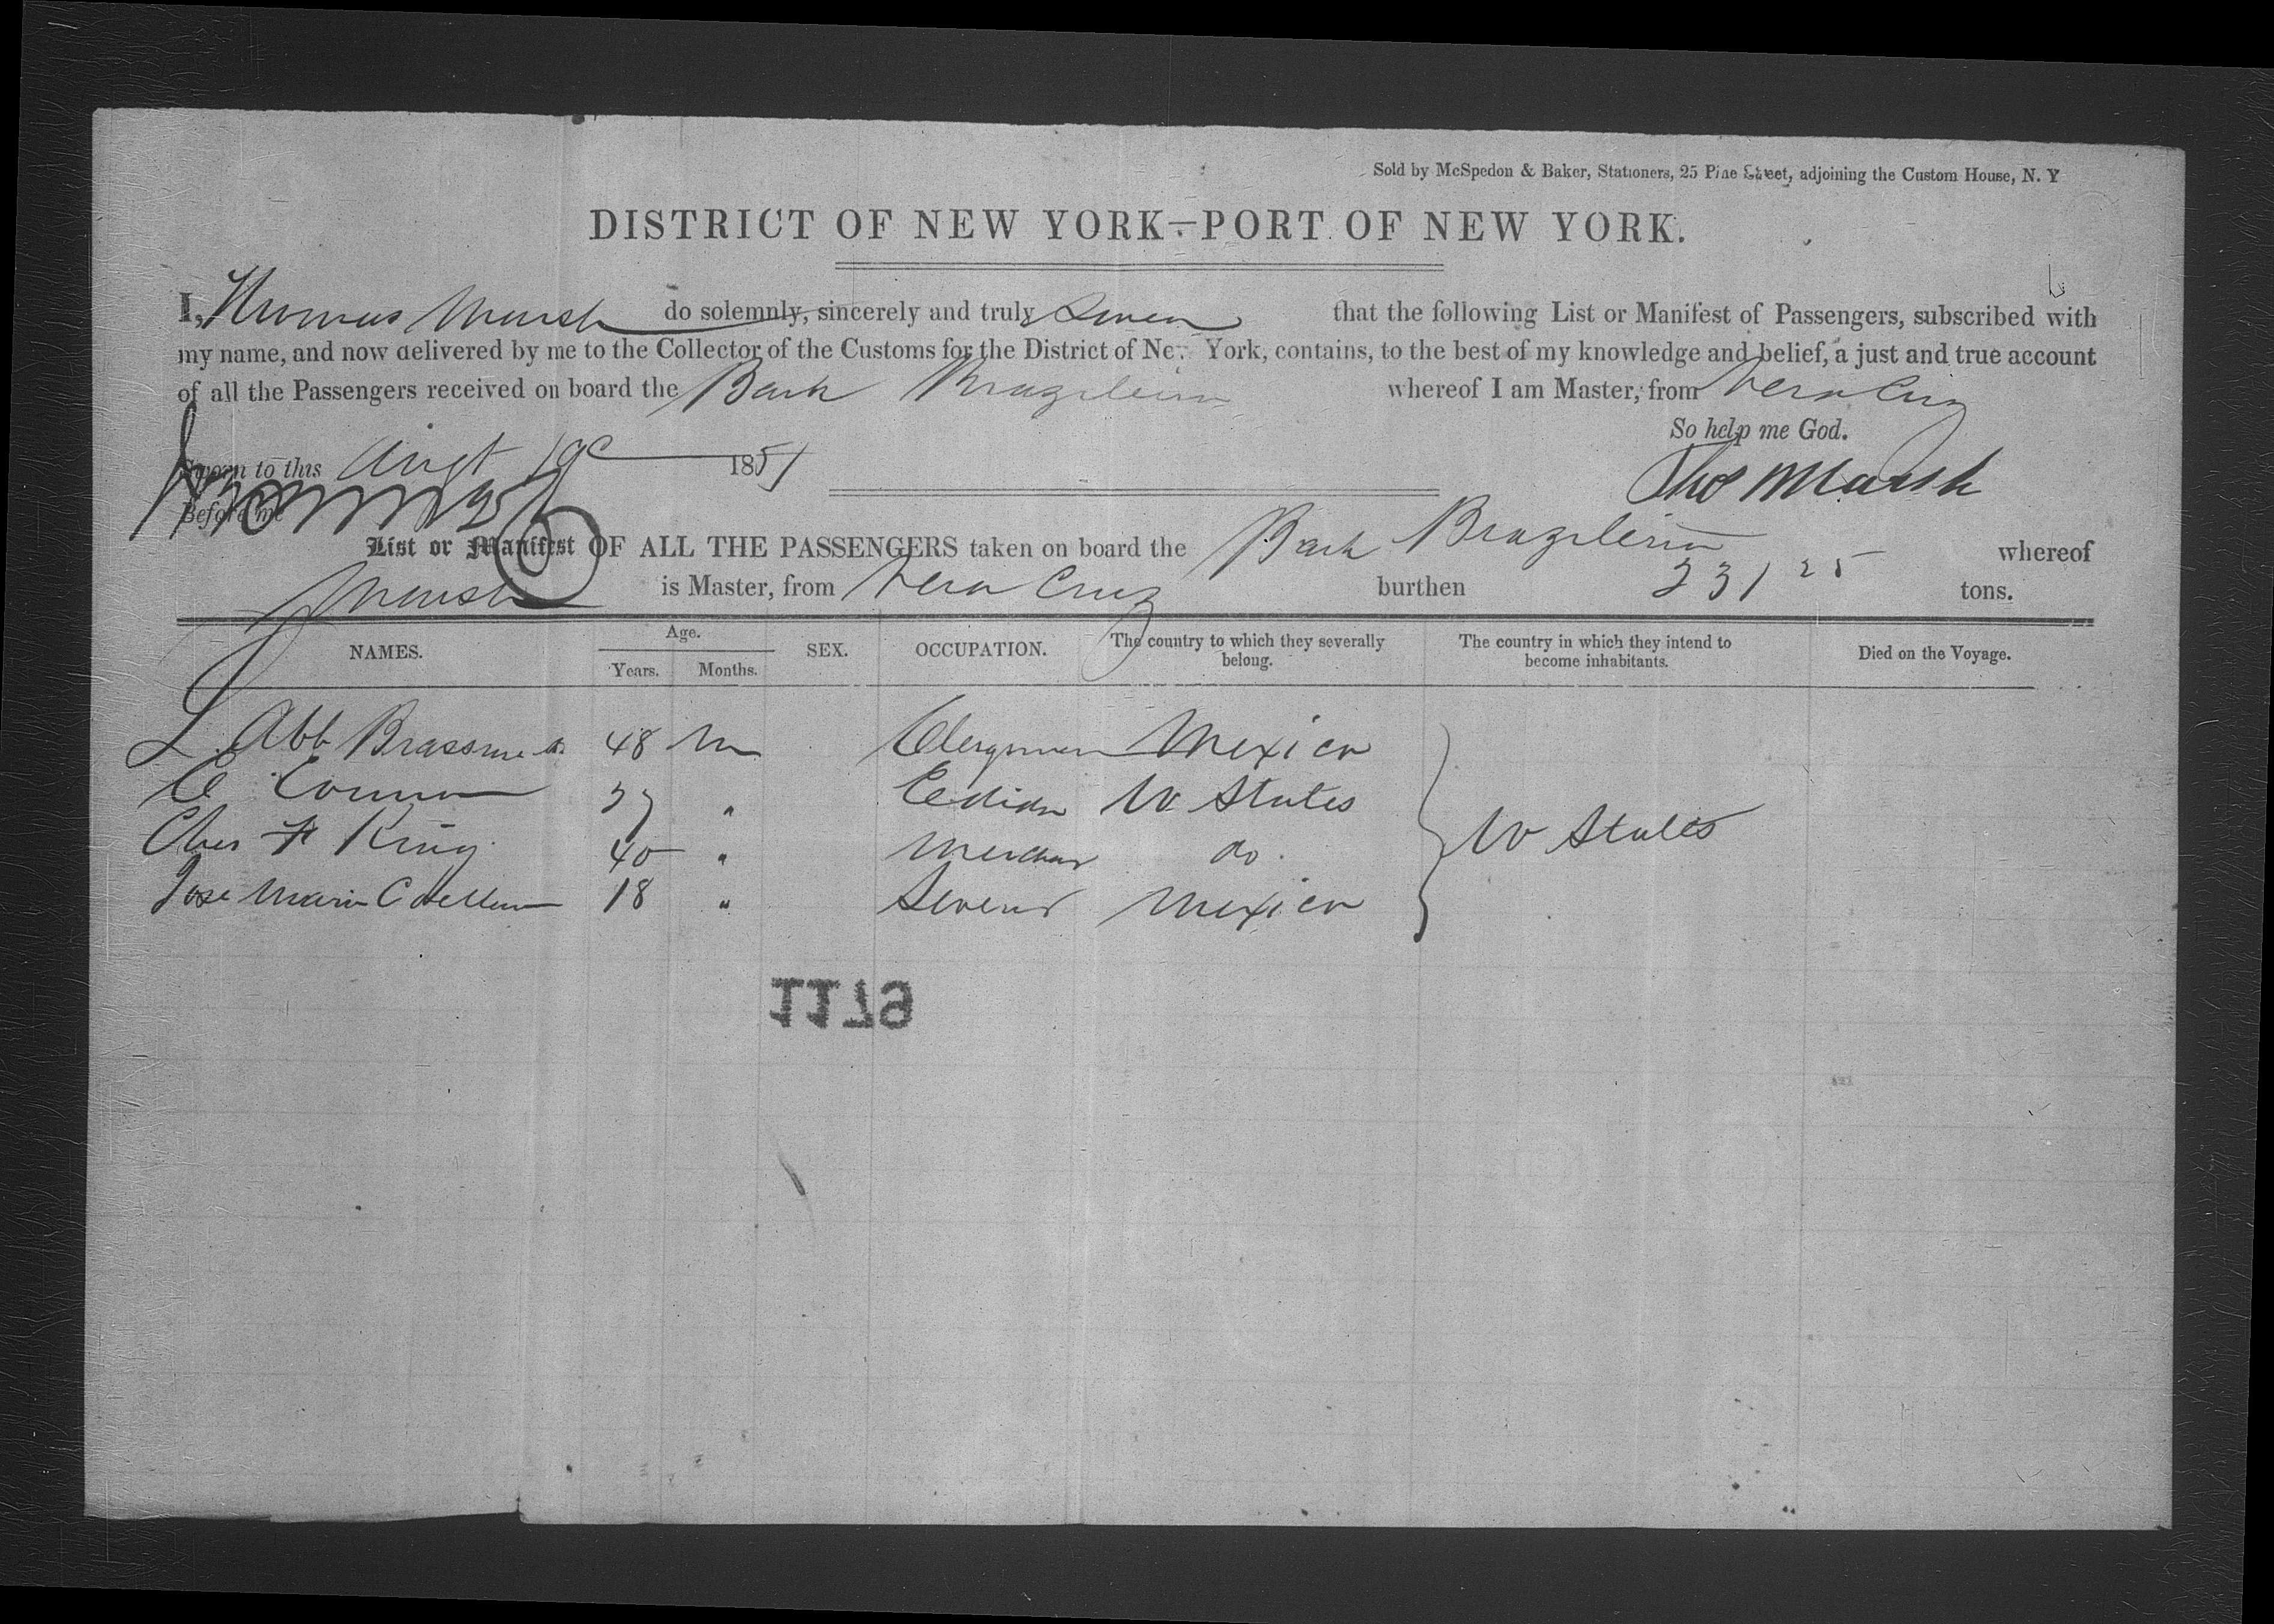 Sold by McSpedon & Baker, Stationers, 25 Pine Street, adjoining the Custom House, N. Y
DISTRICT OF NEW YORK—PORT OF NEW YORK.
I, Thomas Marsh do solemnly, sincerely and truly Swear that the following List or Manifest of Passengers, subscribed with
my name, and now delivered by me to the Collector of the Customs for the District of New York, contains, to the best of my knowledge and belief, a just and true account
of all the Passengers received on board the Bark Brazileira whereof I am Master, from Vera Cruz
So help me God.
Sworn to this Augt 19 1851
Thos Marsh
Before me
List or Manifest OF ALL THE PASSENGERS taken on board the Bark Brazileira whereof
Marsh is Master, from Vera Cruz burthen 231 25 tons.
NAMES. Age. Years. Months. SEX. OCCUPATION. The country to which they severally belong. The country in which they intend to become inhabitants. Died on the Voyage.
L Abb 48 m Clergyman Mexico
C 27 " U States
Chas F King 40 " do U States
Jose Maria 18 " Servant Mexico
1179